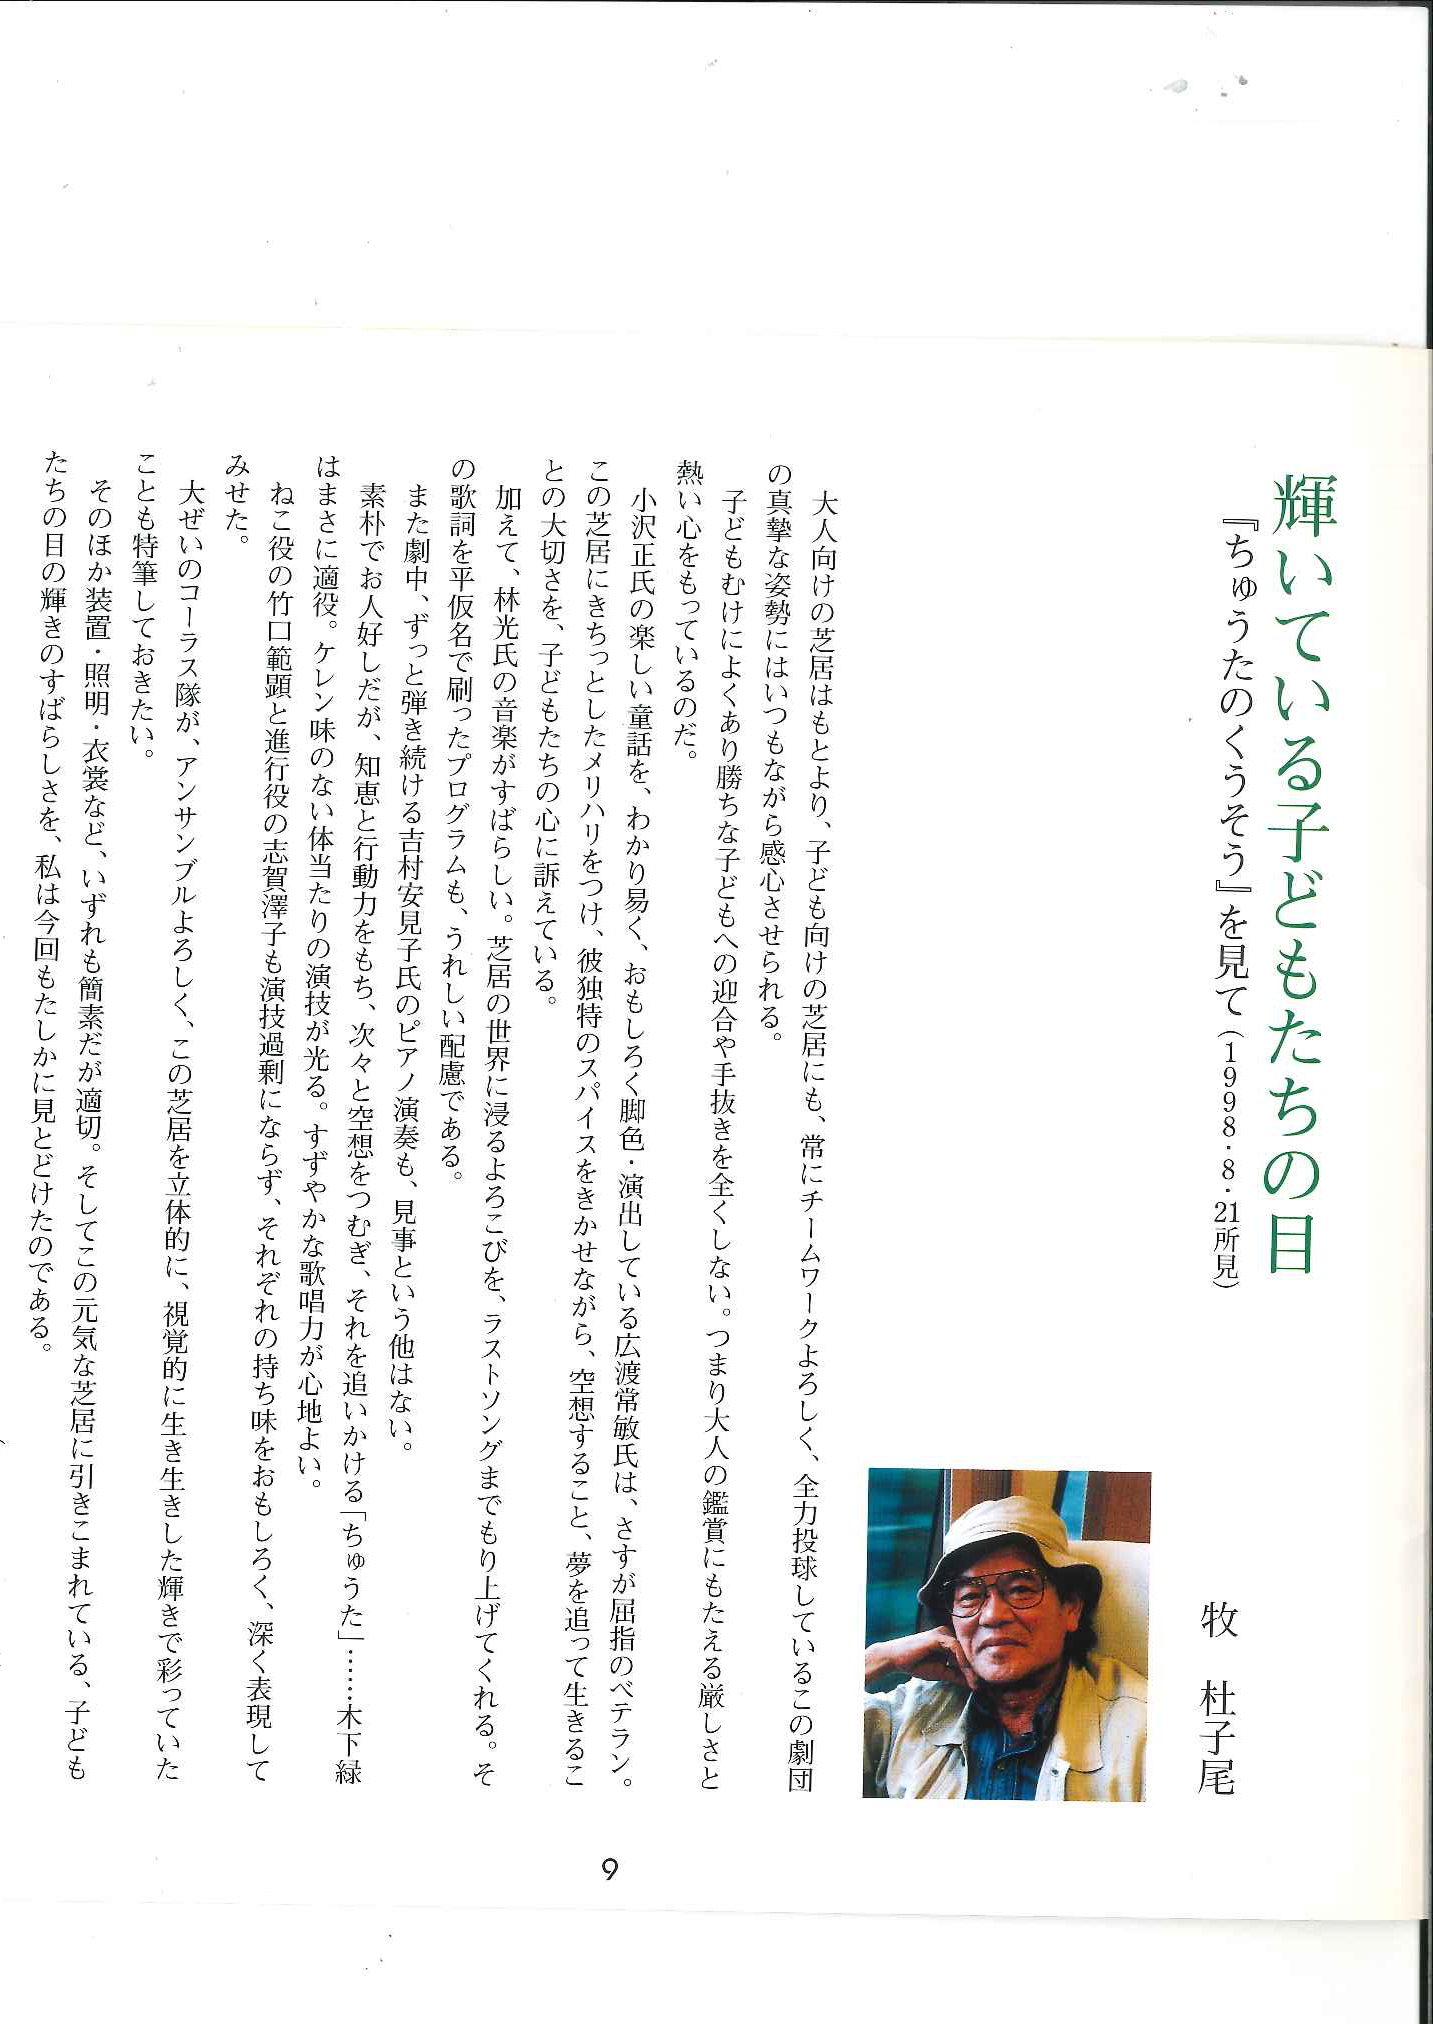 輝いている子どもたちの目
『ちゅうたのくうそう』を見て（1998・8・21所見）
牧　杜子尾
　大人向けの芝居はもとより、子ども向けの芝居にも、常にチームワークよろしく、全力投球しているこの劇団
の真摯な姿勢にはいつもながら感心させられる。
　子どもむけによくあり勝ちな子どもへの迎合や手抜きを全くしない。つまり大人の鑑賞にもたえる厳しさと
熱い心をもっているのだ。
　小沢正氏の楽しい童話を、わかり易く、おもしろく脚色・演出している広渡常敏氏は、さすが屈指のベテラン。
この芝居にきちっとしたメリハリをつけ、彼独特のスパイスをきかせながら、空想すること、夢を追って生きるこ
との大切さを、子どもたちの心に訴えている。
　加えて、林光氏の音楽がすばらしい。芝居の世界に浸るよろこびを、ラストソングまでもり上げてくれる。そ
の歌詞を平仮名で刷ったプログラムも、うれしい配慮である。
　また劇中、ずっと弾き続ける吉村安見子氏のピアノ演奏も、見事という他はない。
　素朴でお人好しだが、知恵と行動力をもち、次々と空想をつむぎ、それを追いかける「ちゅうた」……木下緑
はまさに適役。ケレン味のない体当たりの演技が光る。すずやかな歌唱力が心地よい。
　ねこ役の竹口範顕と進行役の志賀澤子も演技過剰にならず、それぞれの持ち味をおもしろく、深く表現して
みせた。
　大ぜいのコーラス隊が、アンサンブルよろしく、この芝居を立体的に、視覚的に生き生きした輝きで彩っていた
ことも特筆しておきたい。
　そのほか装置・照明・衣裳など、いずれも簡素だが適切。そしてこの元気な芝居に引きこまれている、子ども
たちの目の輝きのすばらしさを、私は今回もたしかに見とどけたのである。
9